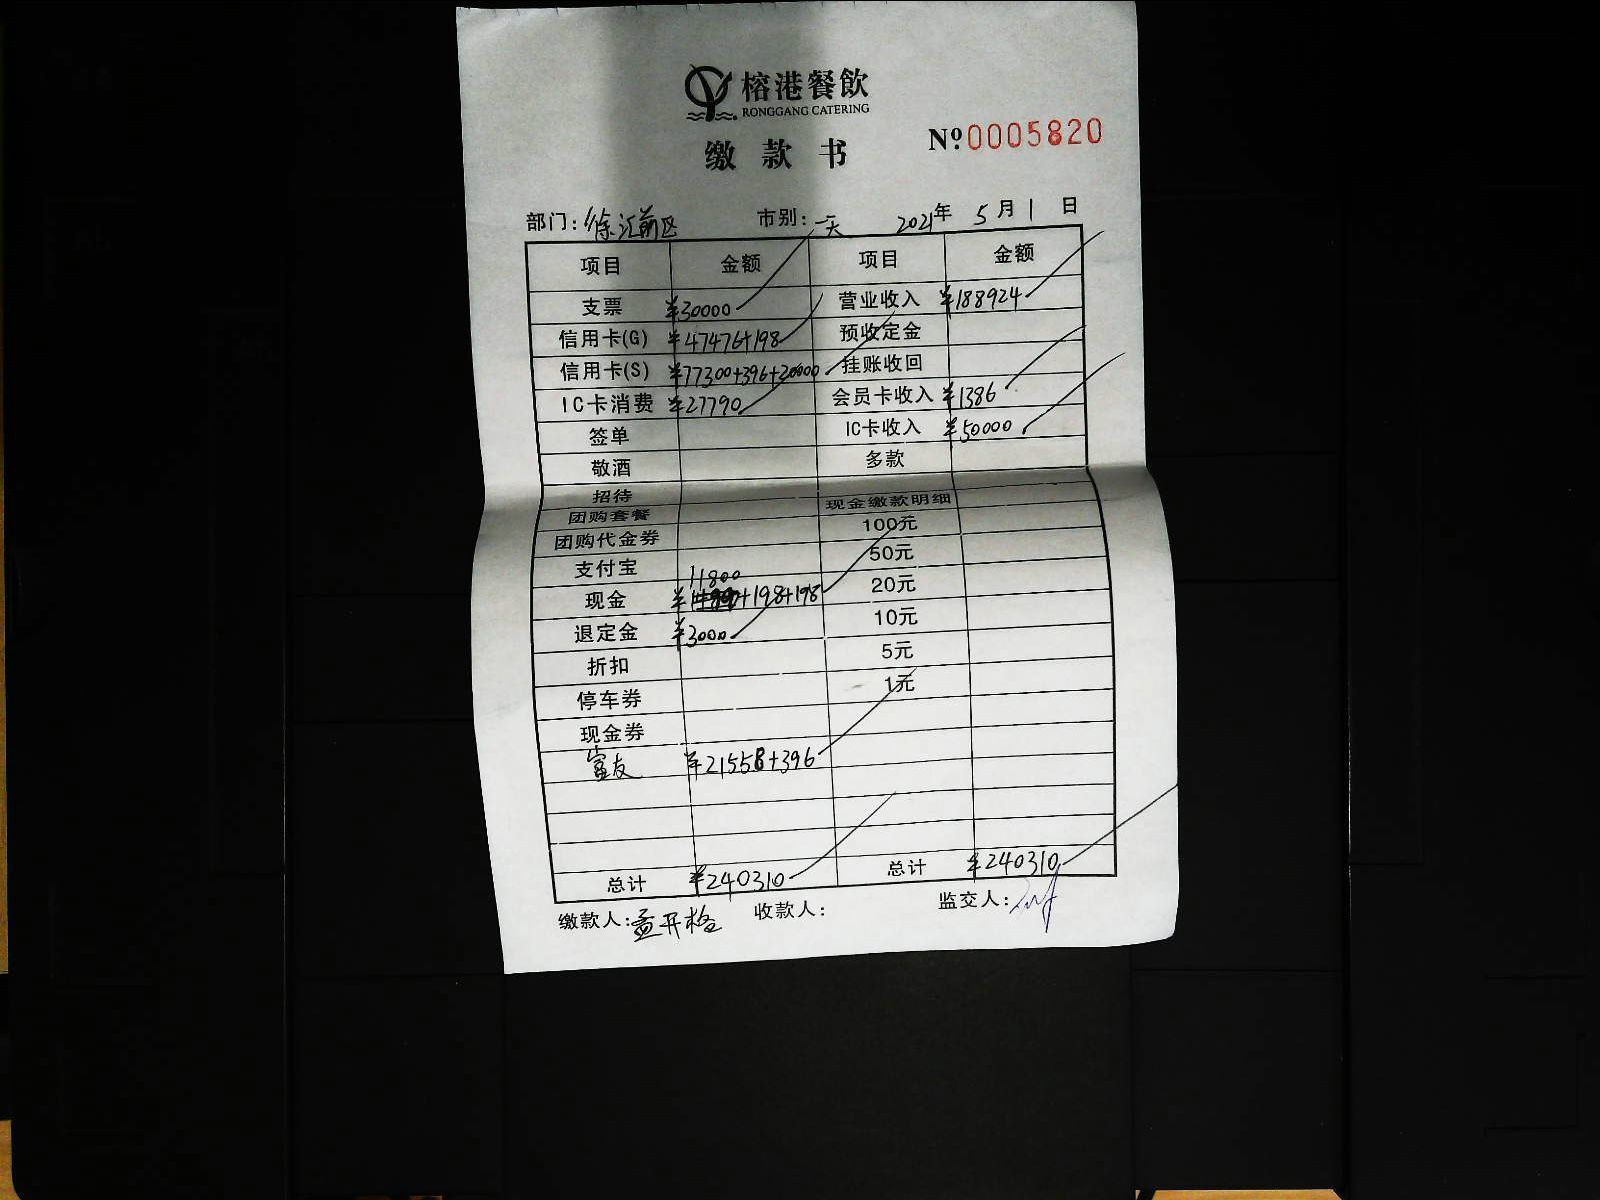 榕港餐飲
RONGGANG CATERING
缴款书
№0005820
部门：徐汇前区 市别：一天 2021年5月1日
项目 金额 项目 金额
支票 ¥30000 营业收入 ¥188924
信用卡(G) ¥47476+198 预收定金
信用卡(S) ¥77300+396+20000 挂账收回
IC卡消费 ¥27790 会员卡收入 ¥1386
签单 IC卡收入 ¥50000
敬酒 多款
招待 现金缴款明细
团购套餐 100元
团购代金券 50元
支付宝 20元
11800
现金 ¥+198+198 10元
退定金 ¥3000 5元
折扣 1元
停车券
现金券
富友 ¥21558+396
总计 ¥240310 总计 ¥240310
缴款人：孟开格 收款人： 监交人：